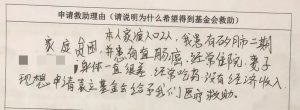 申请救助理由（请说明为什么希望得到基金会救助）
家庭贫困 本人家人口2人，我患有矽肺二期
并患有直肠癌，经常住院，妻子
身体一直很差 经常吃药 没有经济收入
现想申请 基金会给予我们医疗救助。